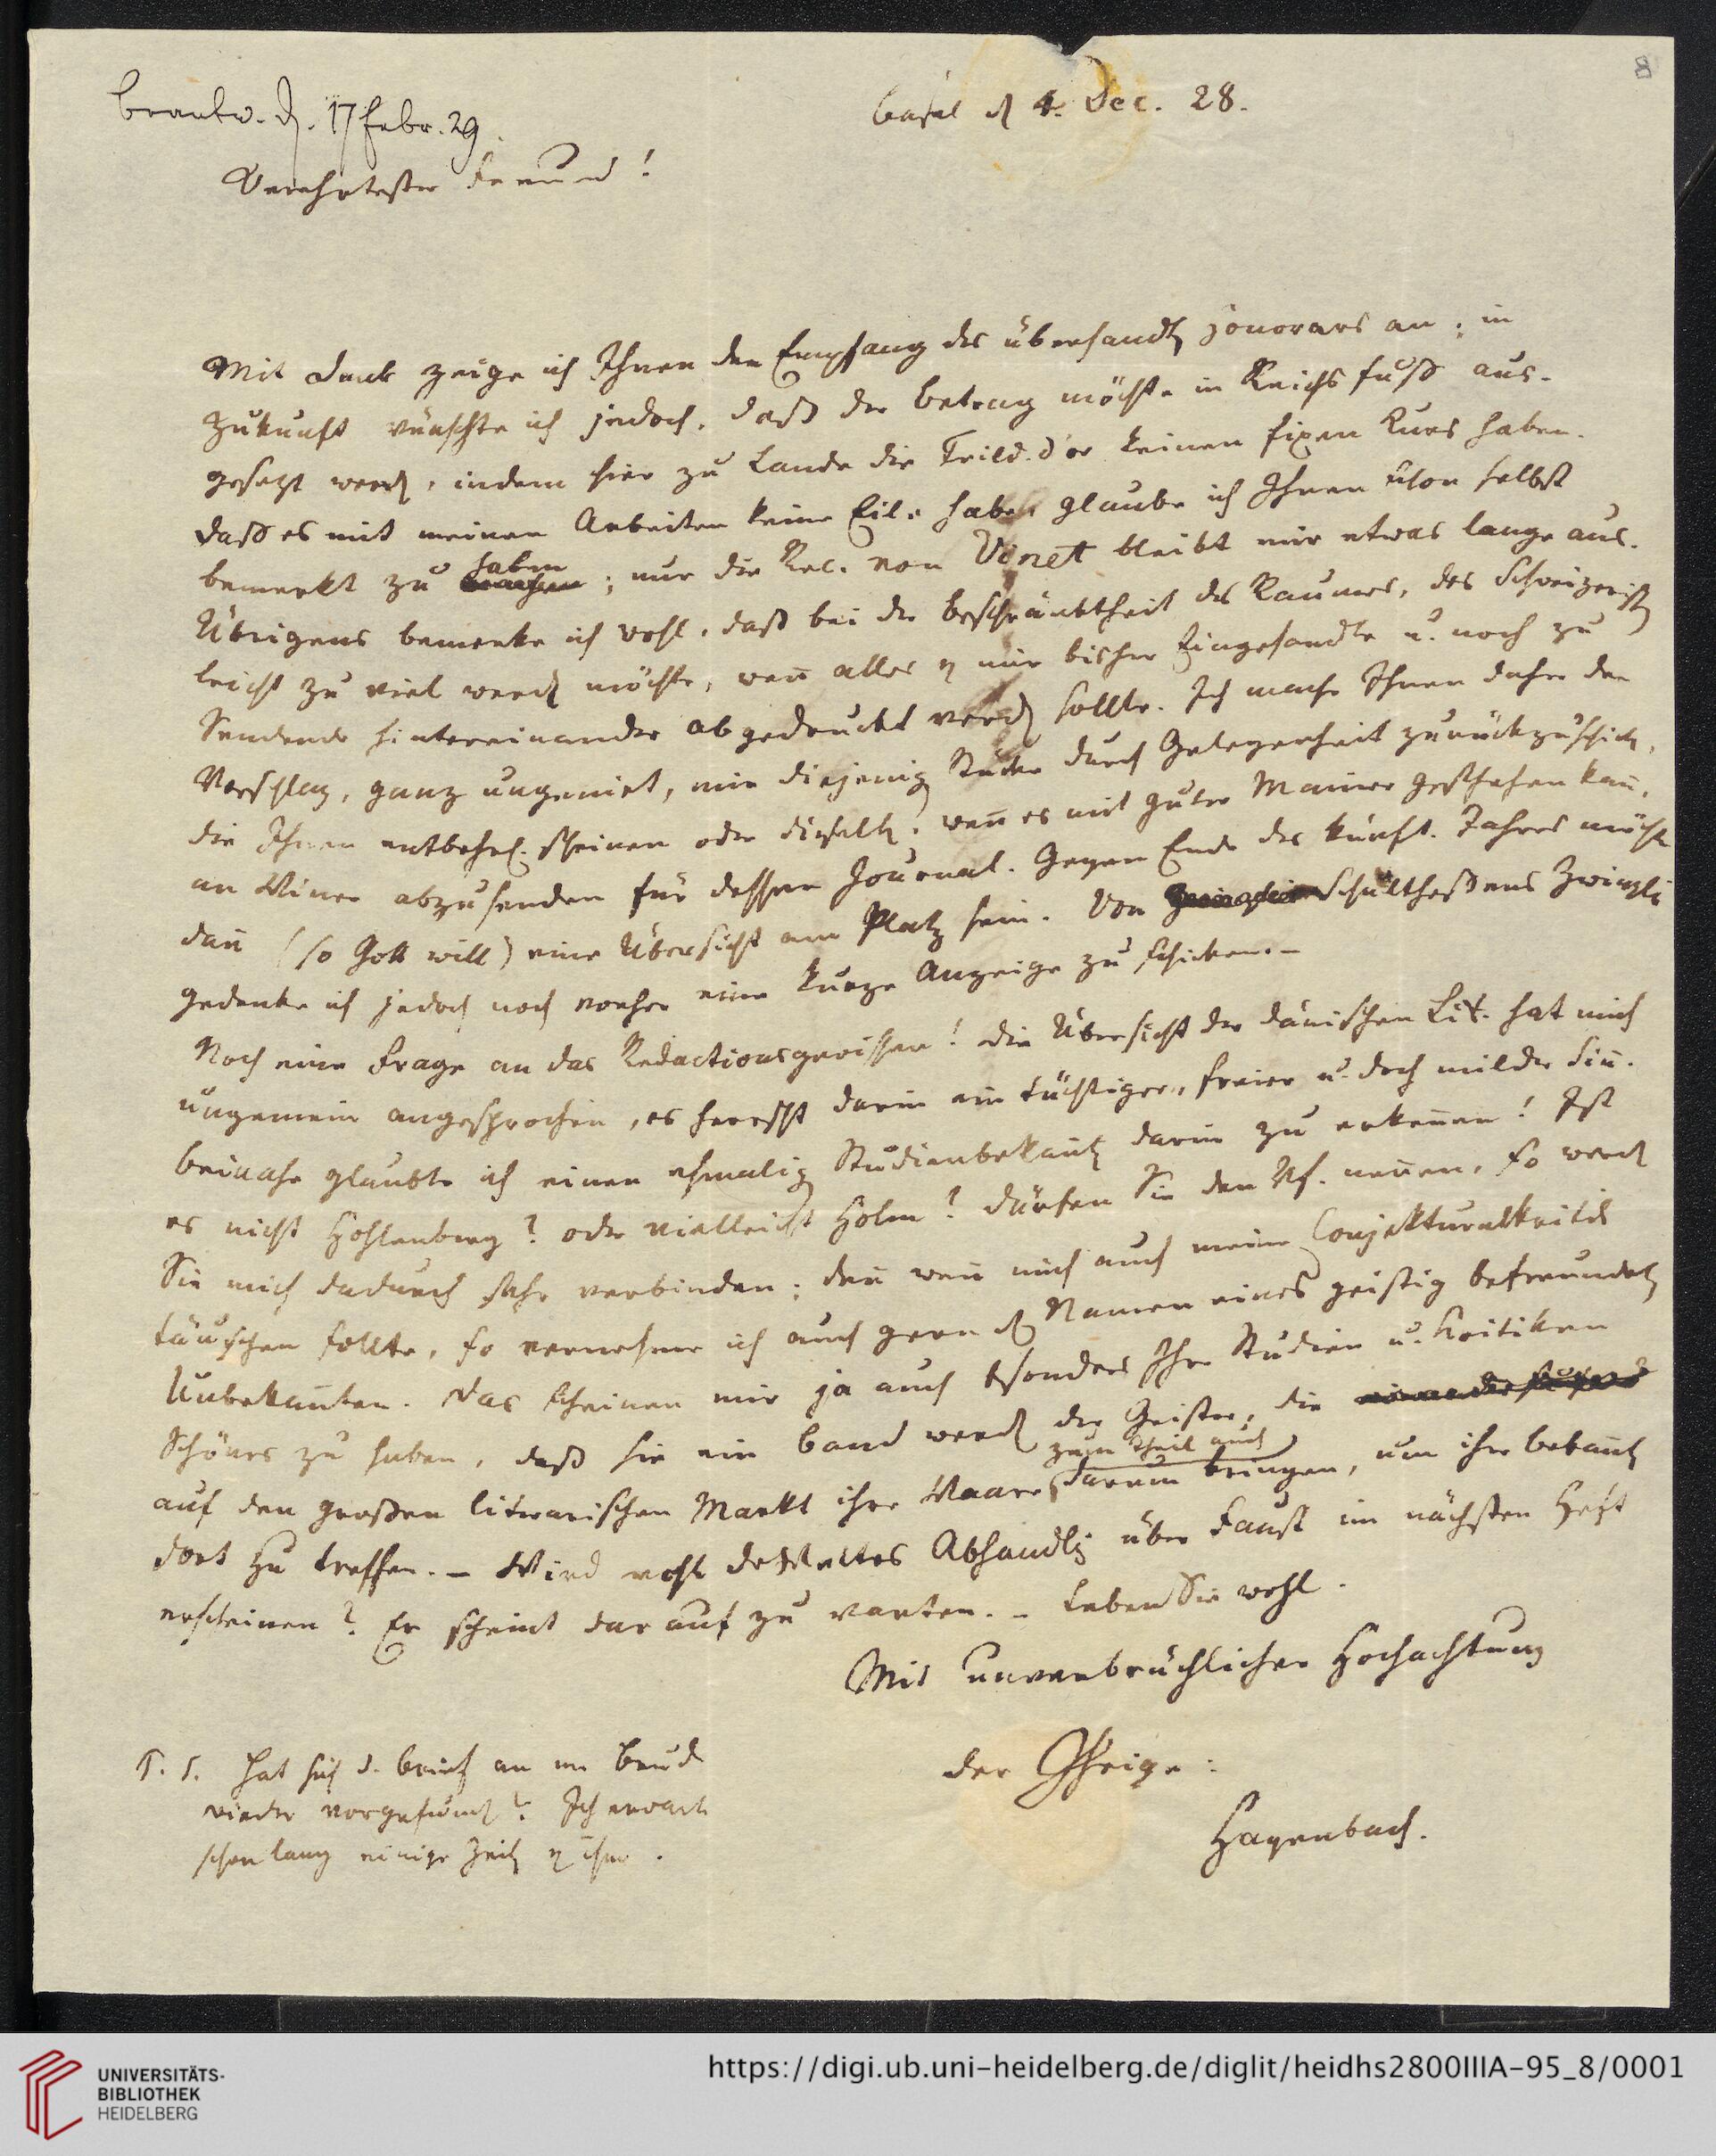 8
beantw. d. 17 Febr. 29.
Basel d 4. Dec. 28.
Verehrtester Freund!
Mit Dank zeige ich Ihnen den Empfang des übersandten Honorars an; in
Zukunft wünschte ich jedoch, daß der Betrag möchte in Reichsfuß aus-
gesetzt werden, indem hier zu Lande die Frild. d'or keinen fixen Kurs haben.
Daß es mit meinen Arbeiten keine Eile habe, glaube ich Ihnen schon selbst
bemerkt zu haben; nur die Rec. von Vinet bleibt mir etwas lange aus.
Übrigens bemerke ich wohl, daß bei der Beschränktheit des Raumes, des Schweizerischen
leicht zu viel werden möchte, wenn alles von mir bisher Eingesandte u. noch zu
Sendende hintereinander abgedruckt werden sollte. Ich mache Ihnen daher den
Vorschlag, ganz ungenirt, mir diejenigen Stücke durch Gelegenheit zurückzuschicken,
die Ihnen entbehrl. scheinen oder dieselben, wenn es mit guter Manier geschehen kann,
an Winer abzusenden für dessen Journal. Gegen Ende des künft. Jahres möchte
dann (so Gott will) eine Übersicht am Platz sein. Von Schultheßens Zwingli
gedenke ich jedoch noch vorher eine kurze Anzeige zu schicken. –
Noch eine Frage an das Redactionsgewissen! Die Übersicht der dänischen Lit. hat mich
ungemein angesprochen, es herrscht darin ein tüchtiger, freier u. doch milder Sinn.
Beinahe glaubte ich einen ehmaligen Studienbekannten darin zu erkennen! Ist
es nicht Hohlenberg? oder vielleicht Holm? Dürfen Sie den Vf. nennen, so werden
Sie mich dadurch sehr verbinden; denn wenn mich auch meine Conjekturalkritik
täuschen sollte, so vernehme ich auch gern den Namen eines geistig befreundeten
Unbekannten. Das scheinen mir ja auch besonders Ihre Studien u. Kritiken
Schönes zu haben, daß sie ein Band werden der Geister, die
auf den großen literarischen Markt ihre Waare zum Theil auch darum bringen, um ihre Bekannten
dort zu treffen. – Wird wohl deWettes Abhandlung über Faust im nächsten Heft
erscheinen? Er scheint darauf zu warten. – Leben Sie wohl.
Mit unverbrüchlicher Hochachtung
der Ihrige:
Hagenbach.
P. S. Hat sich d. Brief an m Bruder
wieder vorgefunden? Ich erwarte
schon lang einige Zeilen von ihm.
UNIVERSITÄTS-
BIBLIOTHEK
HEIDELBERG
https://digi.ub.uni-heidelberg.de/diglit/heidhs2800IIIA-95_8/0001